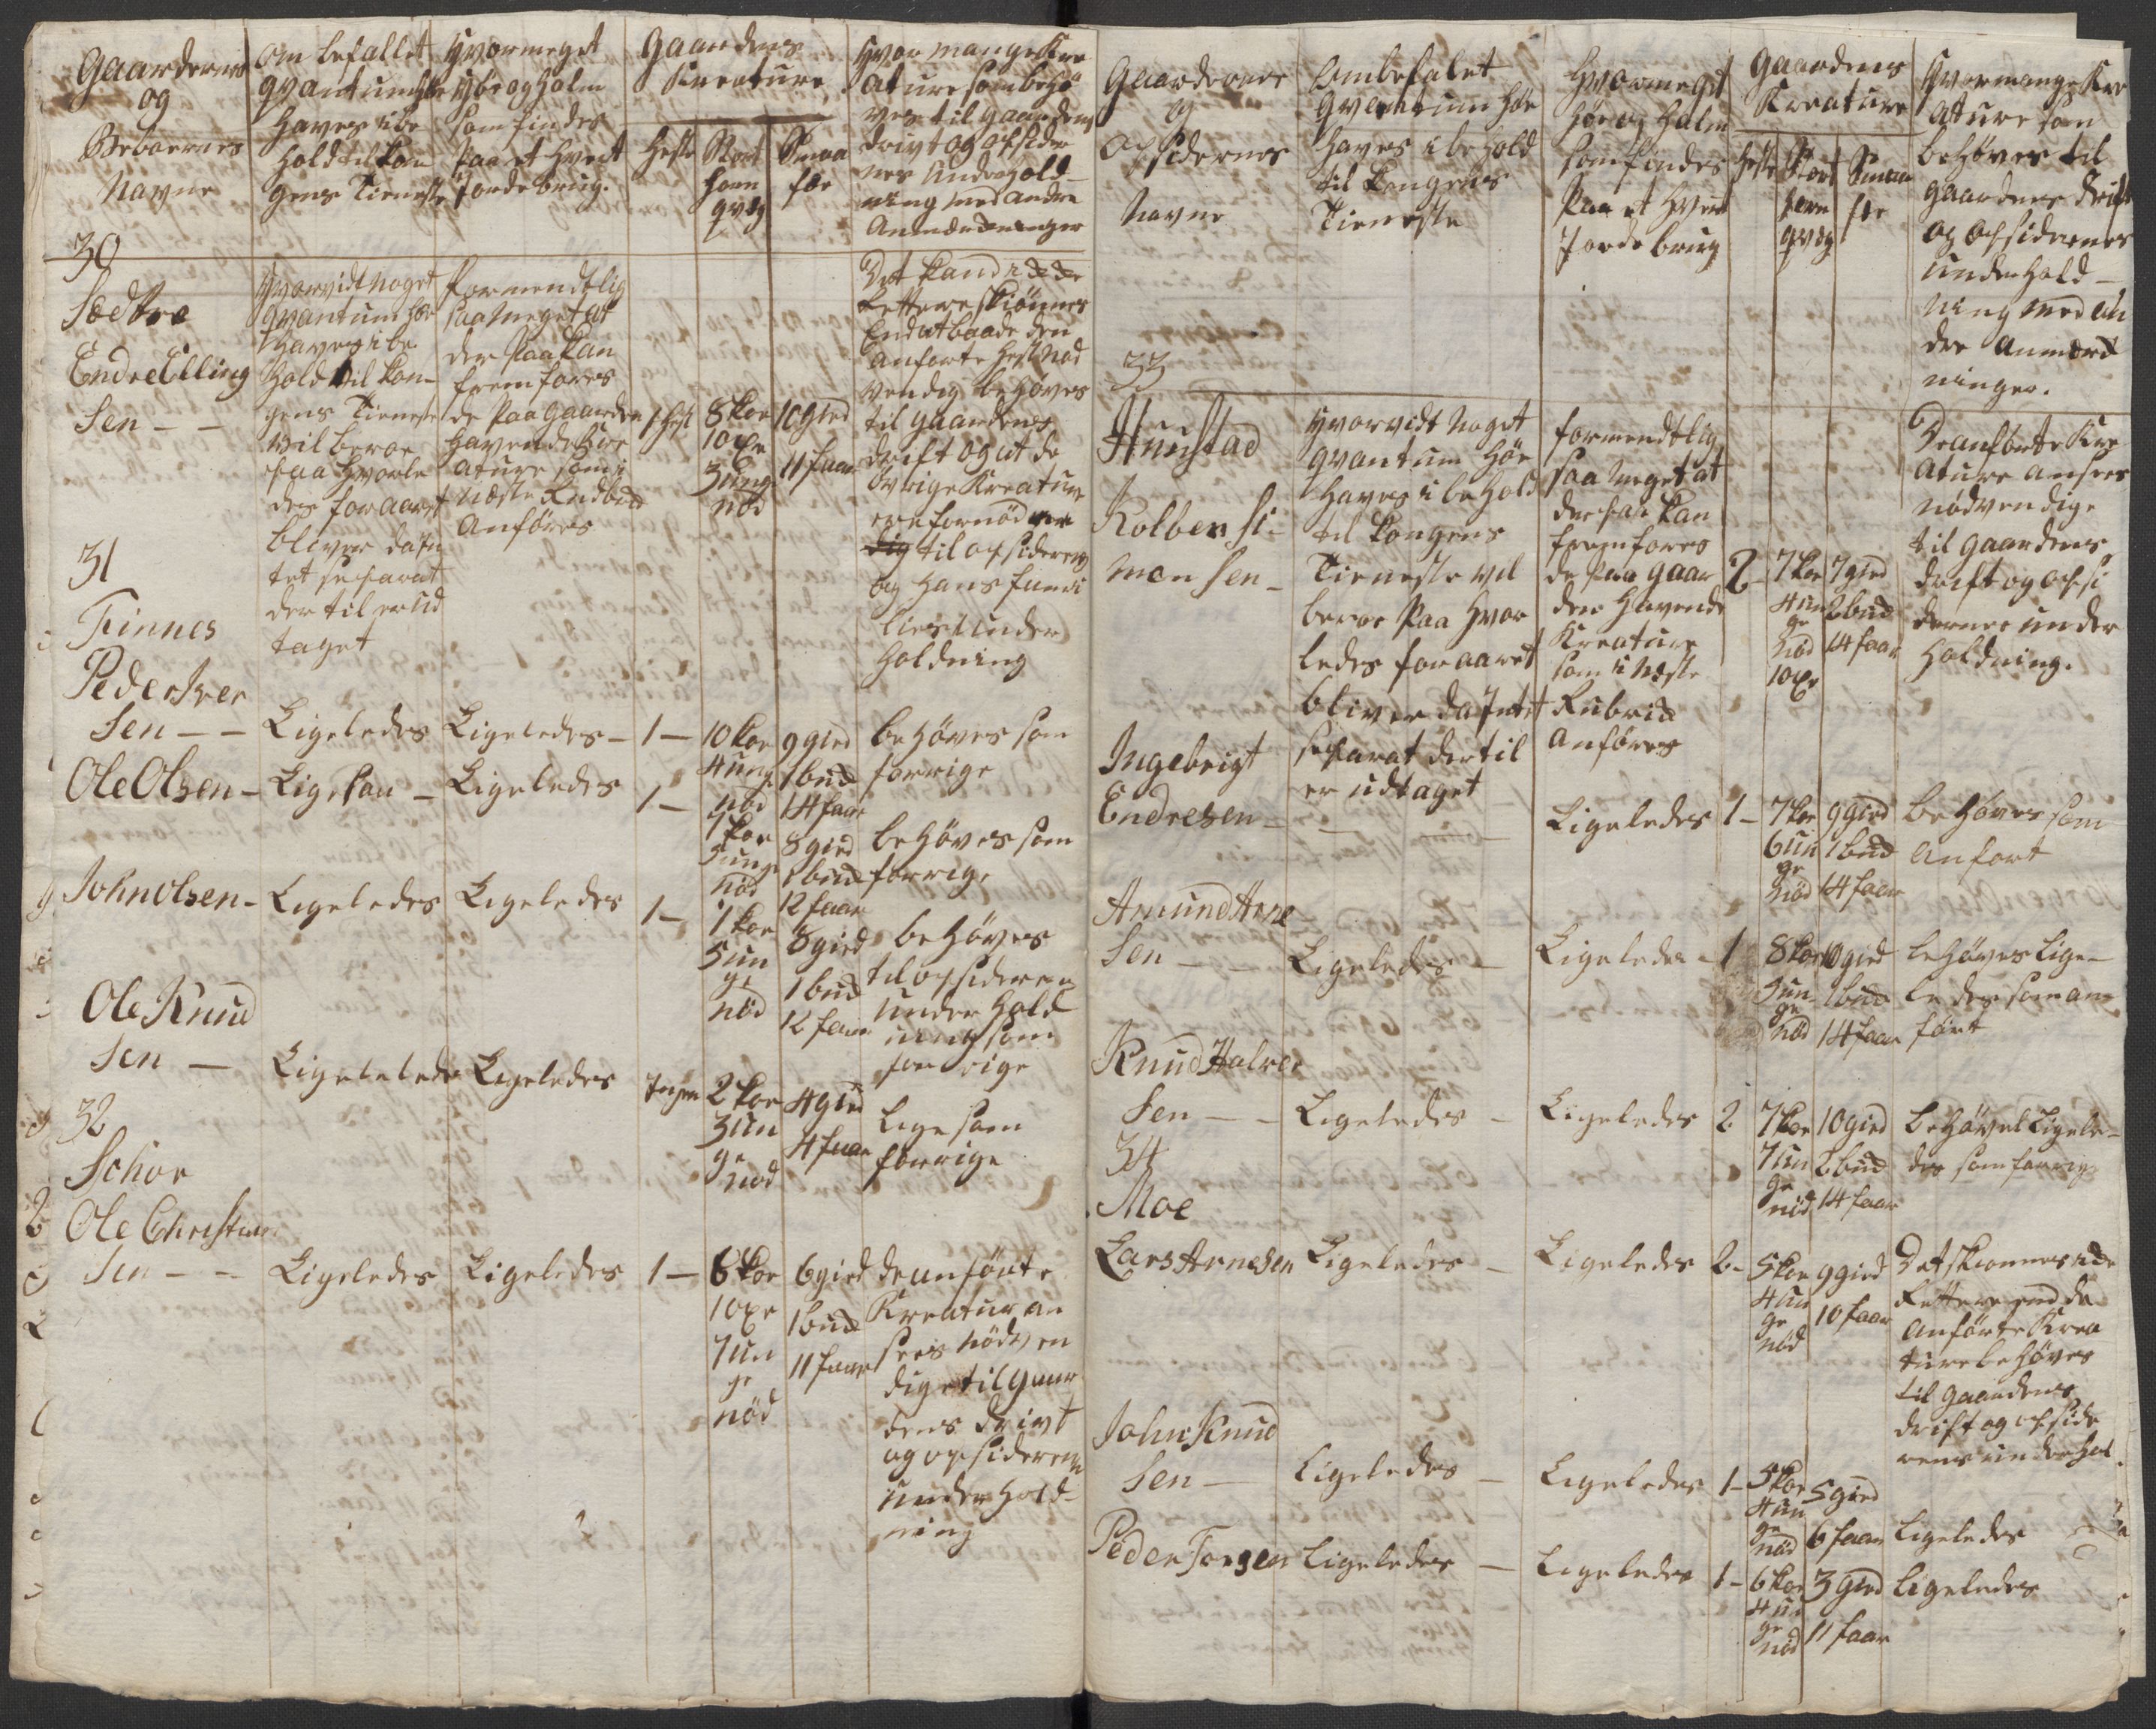 Gaardernes
og
Beboernes
Navne
Om befallet
qvantum høe
haves i be
hold til kon
gens Tieneste
Hvormeget
høe og halm
som findes
paa et hvert
Jordebrug.
Gaardens
Kreature
Heste
Stort
horn
qvæg
Smaa
fæe
Hvor mange Kre
ature som behø
ves til gaardens
drivt og opsider
nes Underhold
ning med andre
Anmærdninger
30
Sædtre
Endre Elling
Sen - -
Hvorvidt noget
qvantum høe
haves i be
hold til kon
gens Tieneste
vil beroe
paa hvorle
des foraaret
bliver da in
tet separat
der til er ud
taget
formendtlig
saa meget at
der paa kan
fremfores
de paa gaarden
havende Kre
ature som i
næste Rubrid
anføres
1 hest
8 kør
1 oxe
3 ung
nød
10 gied
11 faar
Det kand i de de
rettere skiønnes
End at baade den
anførte hest nød
vendig behøves
til gaardens
drift og at de
øvrige Kreature
ere fornøden
til opsideren
og hans fami
lies under
holdning
31
Finnes
Peder Iver
Sen - - Ligeledes Ligeledes - 1 -
10 kør
4 ung
nød
9 gied
1 bud
14 faar
behøves som
forrige
Ole Olsen - Ligesaa - Ligeledes 1 -
7 kør
5 ung
nød
8 gied
1 bud
12 faar
behøves som
forrige
John Olsen - Ligeledes Ligeledes 1 -
7 kør
5 un
ge
nød
8 gied
1 bud
12 faar
behøves
til opsideren
under hold
ning som
forrige
Ole Knud
Sen - Ligeledes Ligeledes Ingen
2 kør
3 un
ge
nød
4 gied
4 faar
Lige som
forrige
32
Schoe
Ole Christian
Sen - - Ligeledes Ligeledes 1 -
6 kør
1 oxe
7 un
ge
nød
6 gied
1 bud
11 faar
de anførte
Kreatur an
sees nødven
dige til gaar
dens drivt
og opsiderens
underhold-
ning
Gaardernes
og
Opsidernes
Navne
Ombefalet
qvantum høe
haves i behold
til kongens
Tieneste
Hvormeget
høe og halm
som findes
paa et hvert
Jordebrug
Gaardens
Kreature
Heste
Stort
horn
qvæg
Smaa
fæe
Hvormange Kre
ature som
behøves til
gaardens drift
og opsidernes
underhold-
ning med an
dre anmærd
ninger.
33
Hunstad
Kolben Si-
mon Sen -
Hvorvidt noget
qvantum høe
haves i behold
til kongens
Tieneste vil
beroe paa hvor
ledes foraaret
bliver da intet
separat der til
er udtaget
formendtlig
saa meget at
der paa kan
fremfores
de paa gaar
den havende
Kreature
som i næste
Rubrid
anføres
2 -
7 kør
4 un
ge
nød
1 oxe
7 gied
2 bud
14 faar
De anførte Kre
ature ansees
nødvendige
til gaardens
drift og opsi
dernes under
holdning.
Ingebrigt
Endresen - Ligeledes 1 -
7 kør
6 un
ge
nød
9 gied
1 bud
14 faar
behøves som
anført
Amund Arne
Sen - - Ligeledes - Ligeledes - 1
8 kør
3 un
ge
nød
10 gied
1 bud
14 faar
behøves Lige-
ledes som an
ført
Knud Halvor
Sen - - Ligeledes - Ligeledes 2
7 kør
7 un
ge
nød
10 gied
2 bud
14 faar
behøves Ligele-
des som forrige
34
Moe
Lars Arnesen Ligeledes - Ligeledes 2 -
5 kør
4 un
ge
nød
9 gied
10 faar
Det skiønnes i de
rettere end de
anførte Krea
ture behøves
til gaardens
drift og opside
rens underhol.
John Knud
Sen - Ligeledes - Ligeledes 1 -
5 kør
4 un
ge
nød
5 gied
6 faar
Ligeledes
Peder Torgersen Ligeledes - Ligeledes 1 -
6 kør
4 un
ge
nød
3 gied
11 faar
Ligeledes